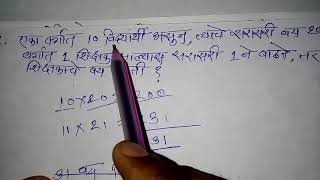 एका वर्गात 10 विद्यार्थी असून, त्यांचे सरासरी वय 20
वर्गात 1 शिक्षक आल्यास सरासरी 1 ने वाढते, तर
शिक्षकाचे वय
10 × 20 = 200
11 × 21 = 231
31